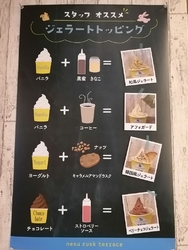 スタッフ オススメ
ジェラートトッピング
バニラ + 黒蜜 きなこ =
和風ジェラート
バニラ + コーヒー =
アフォガード
ヨーグルト + ナッツ
キャラメルアマンドラスク =
韓国風ジェラート
チョコレート + ストロベリーソース =